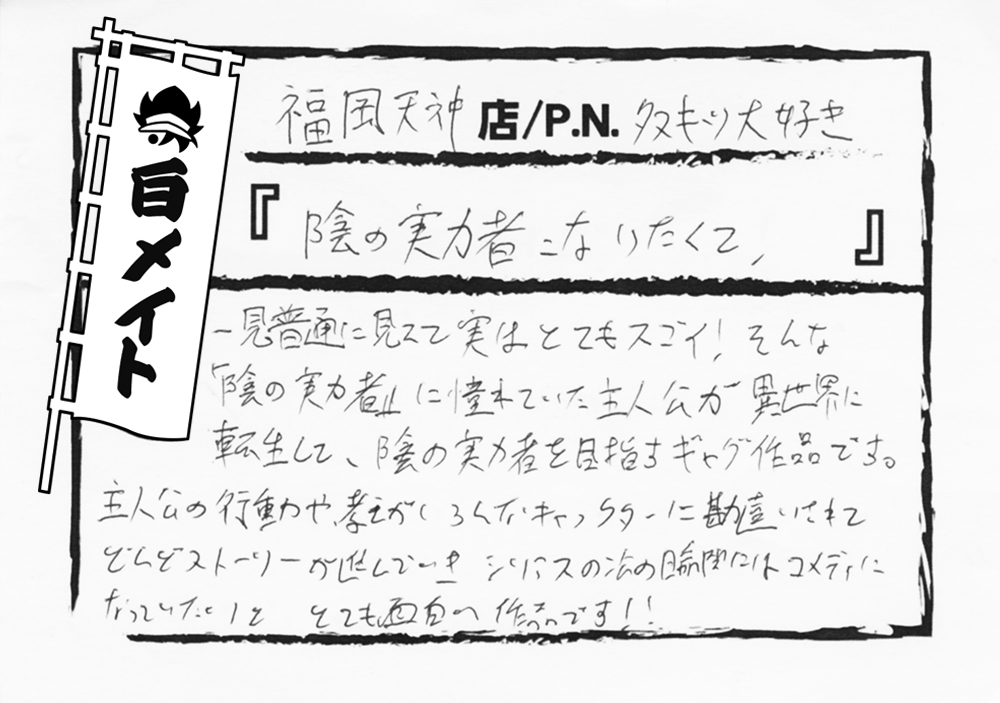 白メイト
福岡天神店/P.N. タヌキッツ大好き
『陰の実力者になりたくて、』
一見普通に見えて実はとてもスゴイ!そんな
「陰の実力者」に憧れていた主人公が異世界に
転生して、陰の実力者を目指すギャグ作品です。
主人公の行動や考えがいろんなキャラクターに勘違いされて
どんどんストーリーが進んでいき シリアスの次の瞬間にはコメディに
なっていたりと とても面白い作品です!!